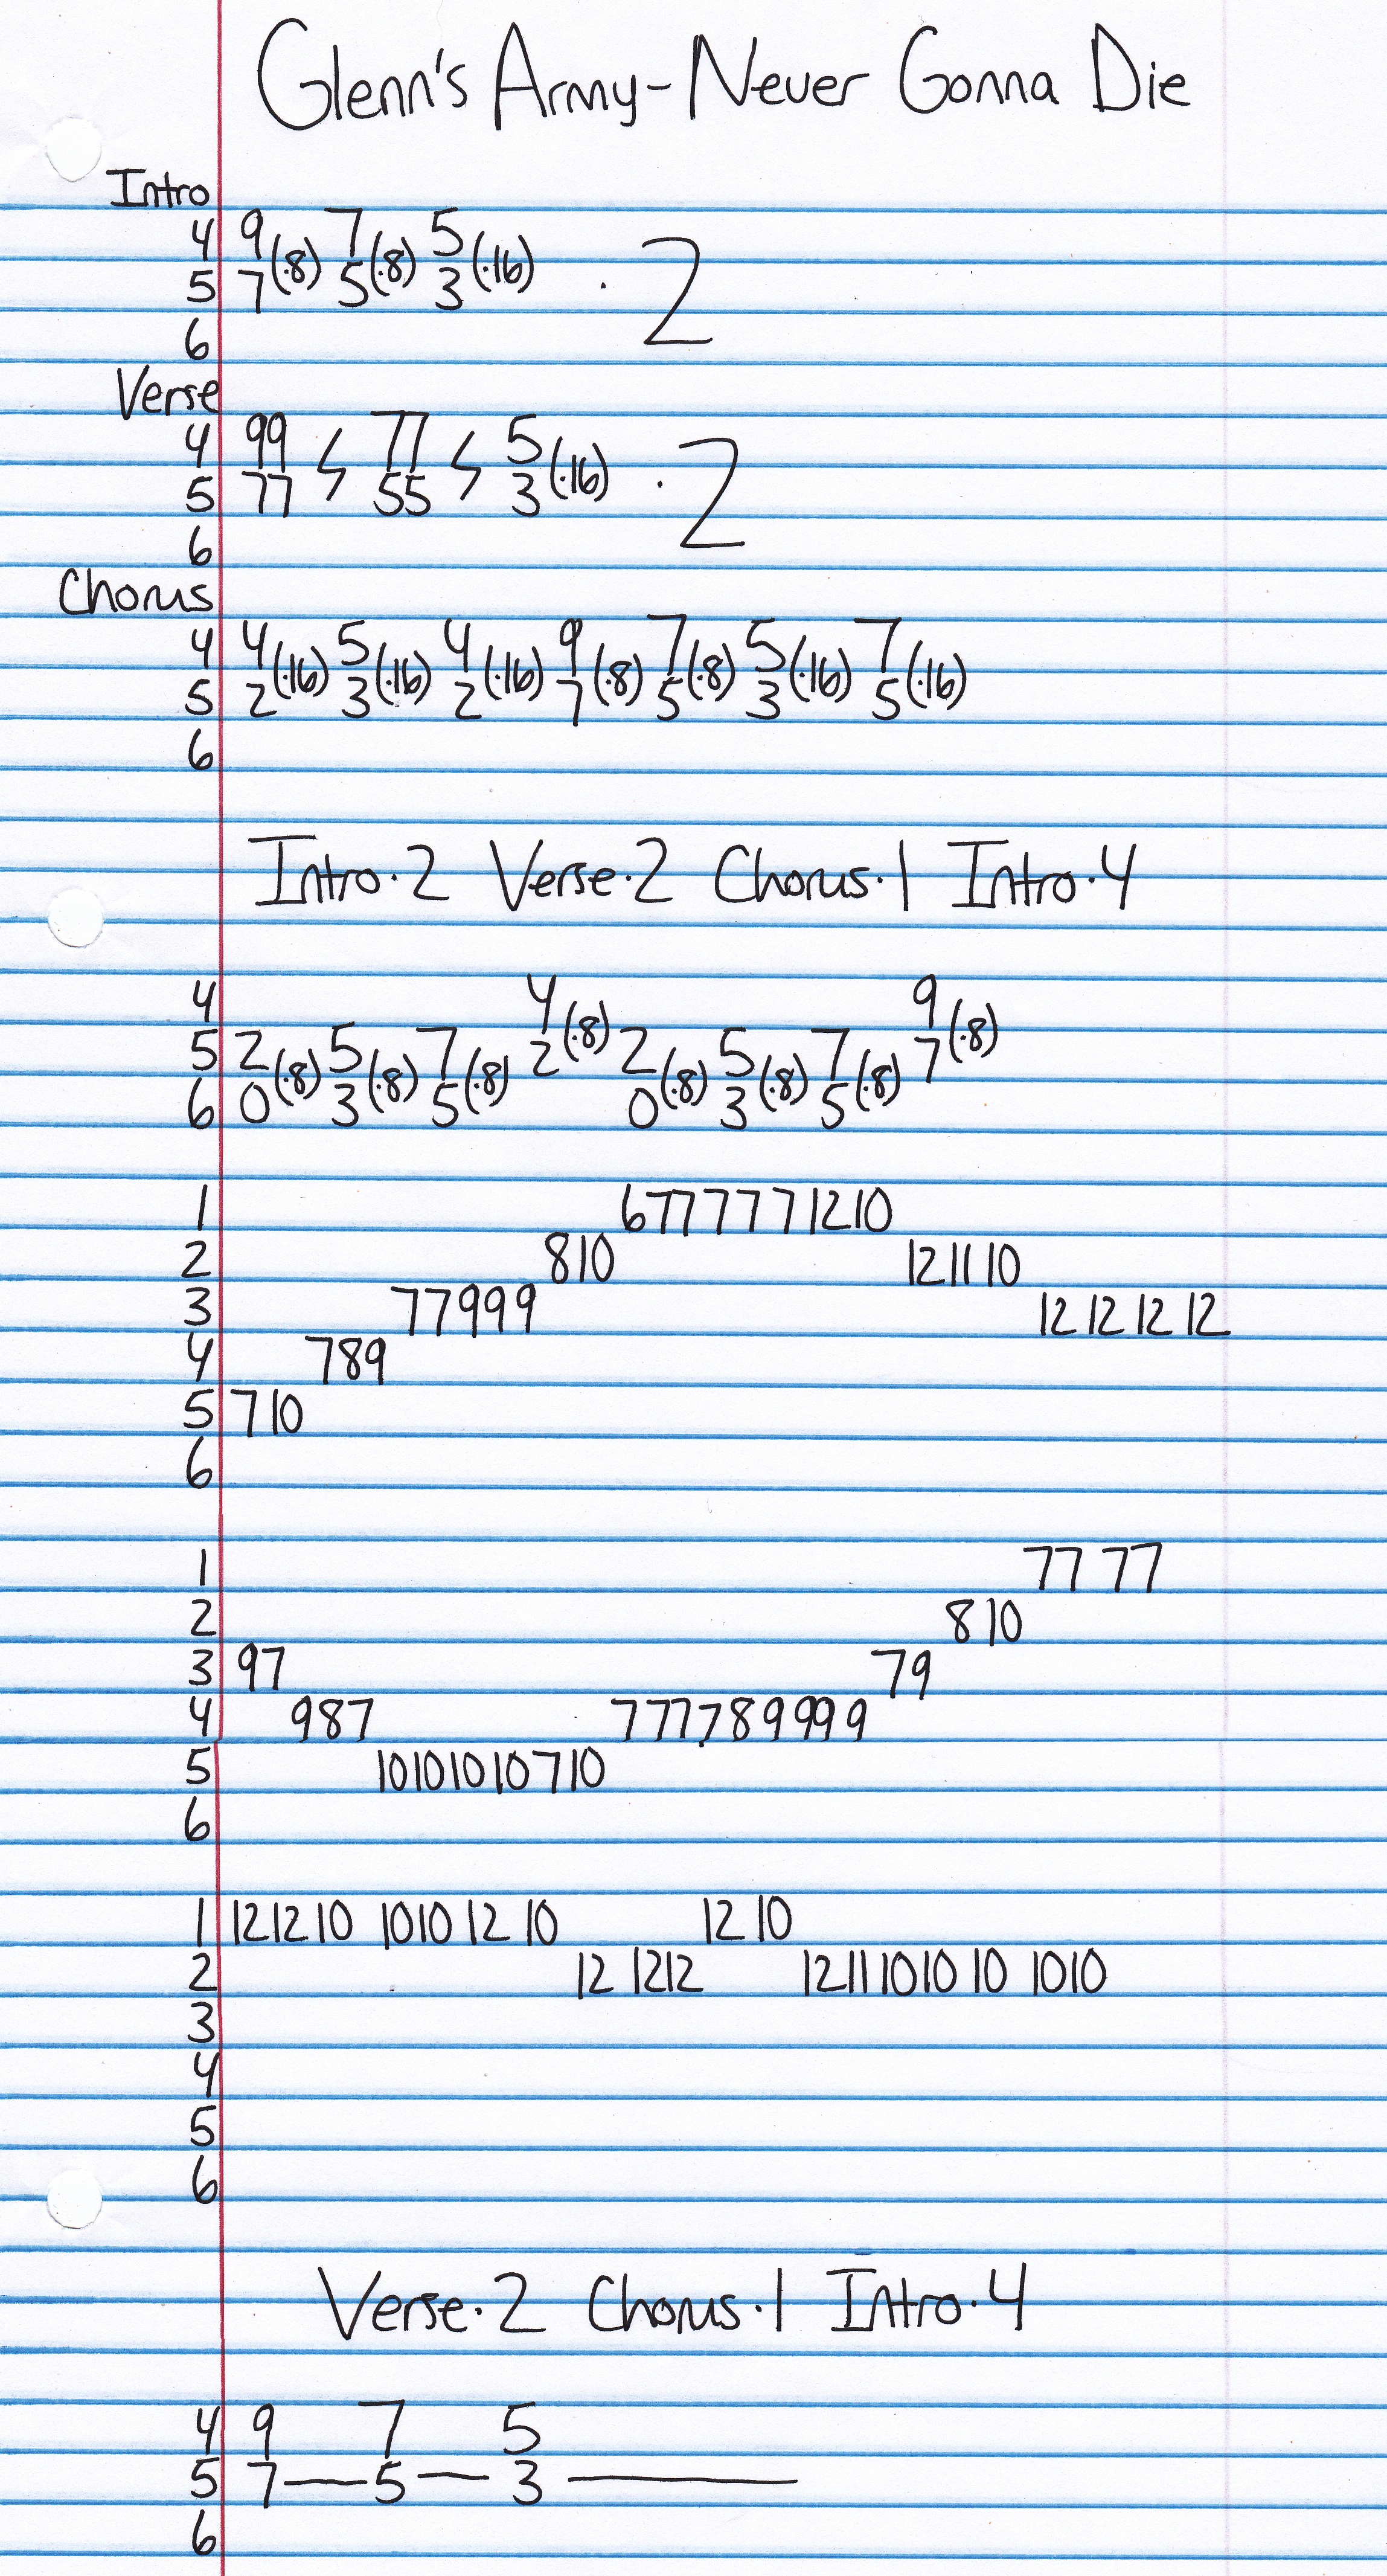 Glenn's Army-Never Gonna Die
Intro
4 9(·8) 7(·8) 5(·16) · 2
5 7 5 3
6
Verse
4 99 ϟ 77 ϟ 5(·16) · 2
5 77 55 3
6
Chorus
4 4(·16) 5(·16) 4(·16) 9(·8) 7(·8) 5(·16) 7(·16)
5 2 3 2 7 5 3 5
6
Intro·2 Verse·2 Chorus·1 Intro·4
4 4(·8) 9(·8)
5 2(·8) 5(·8) 7(·8) 2 2(·8) 5(·8) 7(·8) 7
6 0 3 5 0 3 5
1 677 7 7 7 12 10
2 8 10 12 11 10
3 77999 12 12 12 12
4 789
5 7 10
6
1 77 77
2 8 10
3 97 79
4 987 777789999
5 10 10 10 10 7 10
6
1 12 12 10 10 10 12 10 12 10
2 12 12 12 12 11 10 10 10 10 10
3
4
5
6
Verse·2 Chorus·1 Intro·4
4 9 7 5
5 7—5—3—
6